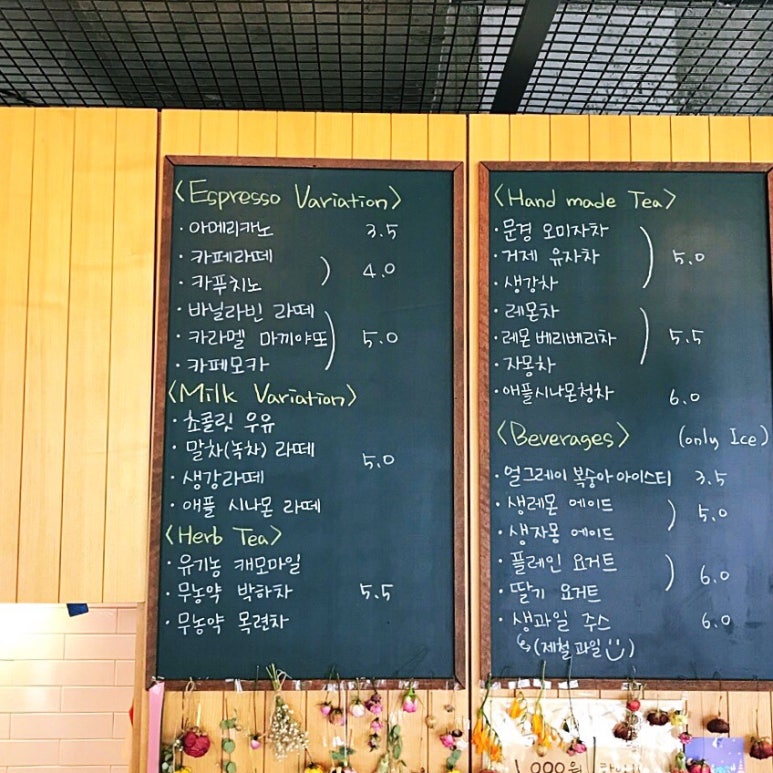 <Espresso Variation>
· 아메리카노 3.5
· 카페라떼
· 카푸치노 ) 4.0
· 바닐라빈 라떼
· 카라멜 마끼야또 ) 5.0
· 카페모카
<Milk Variation>
· 쵸콜릿 우유
· 말차(녹차) 라떼 5.0
· 생강라떼
· 애플 시나몬 라떼
<Herb Tea>
· 유기농 캐모마일
· 무농약 박하차 5.5
· 무농약 목련차
<Hand made Tea>
· 문경 오미자차
· 거제 유자차 ) 5.0
· 생강차
· 레몬차
· 레몬베리베리차 ) 5.5
· 자몽차
· 애플시나몬청차 6.0
<Beverages> (only Ice)
· 얼그레이 복숭아아이스티 3.5
· 생레몬 에이드 ) 5.0
· 생자몽 에이드
· 플레인 요거트 ) 6.0
· 딸기 요거트
· 생과일 주스 6.0
↳ (제철과일)